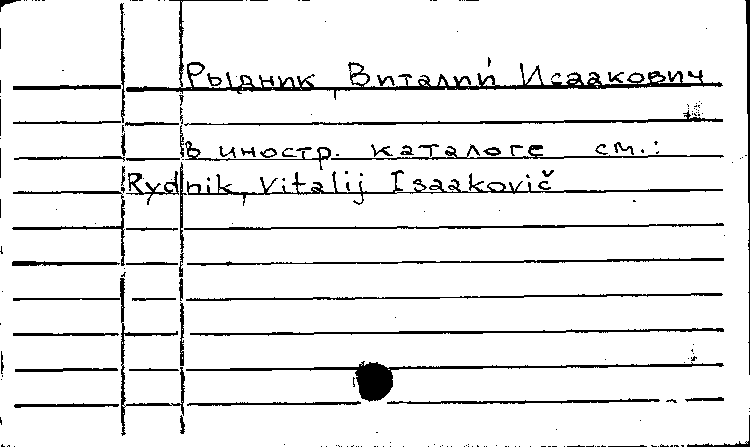 Рыдник, Виталий Исаакович
в иностр. каталоге см.:
Rydnik, Vitalij Isaakovič